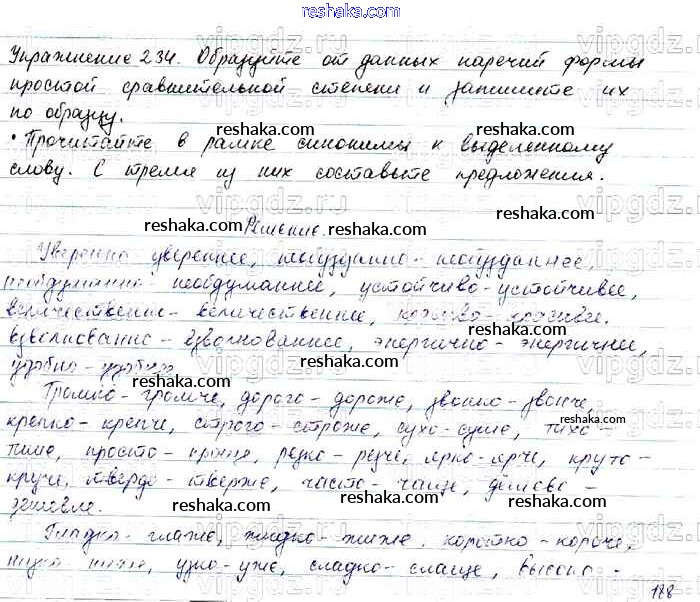 reshaka.com
Упражнение 234. Образуйте от данных наречий формы
простой сравнительной степени и запишите их
по образцу.
reshaka.com reshaka.com
• Прочитайте в рамке синонимы к выделенному
слову. С тремя из них составьте предложения.
reshaka.com reshaka.com
Решение.
Уверенно увереннее, необузданно - необузданнее,
необдуманно - необдуманнее, устойчиво - устойчивее,
величественно - величественнее, красиво - красивее.
взволнованно - взволнованнее, энергично - энергичнее,
удобно - удобнее
reshaka.com reshaka.com
Громко - громче, дорого - дороже, звонко - звонче,
крепко - крепче, строго - строже, сухо - суше, тихо -
reshaka.com
тише, просто - проще, резко - резче, ярко - ярче, круто -
круче, твердо - тверже, часто - чаще, дёшево -
дешевле.
reshaka.com reshaka.com
Гладко - глаже, жидко - жиже, коротко - короче,
низко ниже, узко - уже, сладко - слаще, высоко -
reshaka.com reshaka.com
118
vipgdz.ru